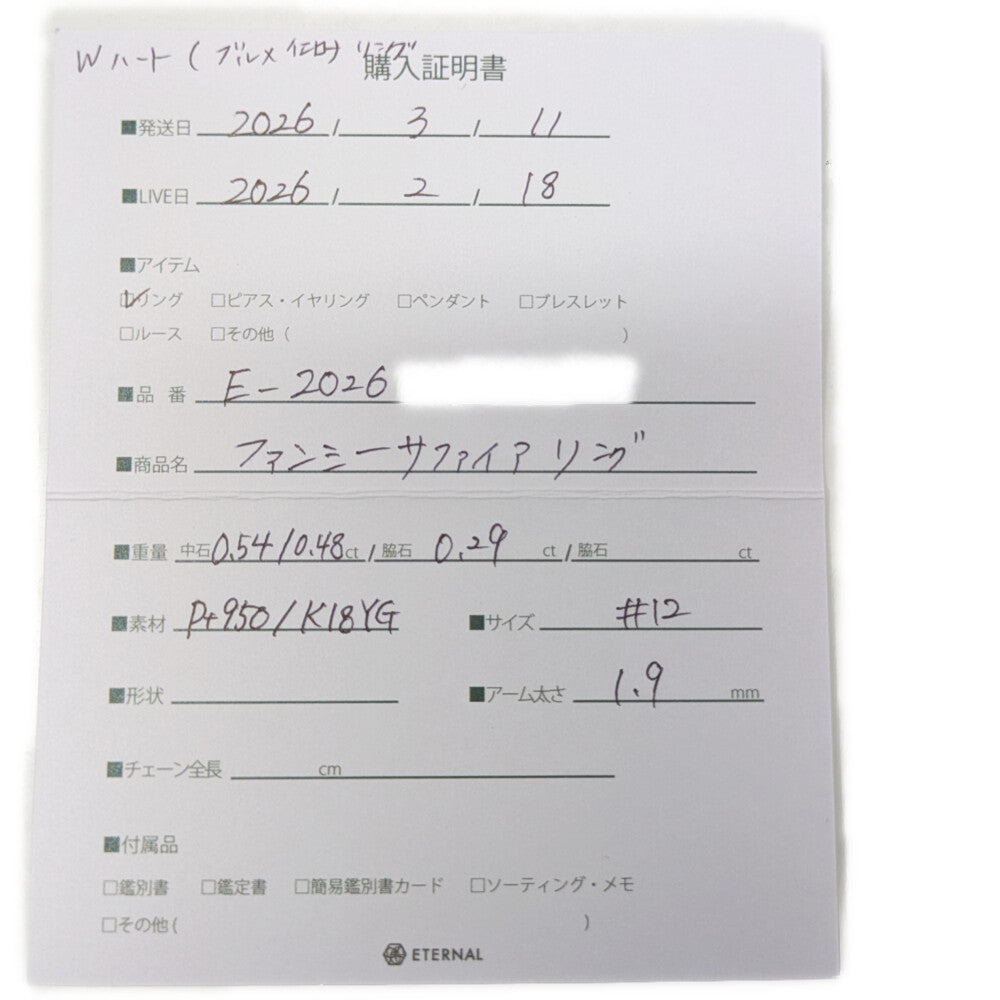 Wハート(ブルメ イエロー リング
購入証明書
■発送日 2026 / 3 / 11
■LIVE日 2026 / 2 / 18
■アイテム
☑リング □ピアス・イヤリング □ペンダント □ブレスレット
□ルース □その他 ( )
■品 番 E-2026
■商品名 ファンシーサファイアリング
■重量 中石0.54/0.48ct / 脇石 0.29 ct / 脇石 ct
■素材 Pt950/K18YG ■サイズ #12
■形状 ■アーム太さ 1.9 mm
■チェーン全長 cm
■付属品
□鑑別書 □鑑定書 □簡易鑑別書カード □ソーティング・メモ
□その他 ( )
ETERNAL